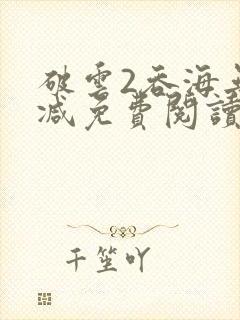 破雲2吞海無
減免費閱讀
千笙吖